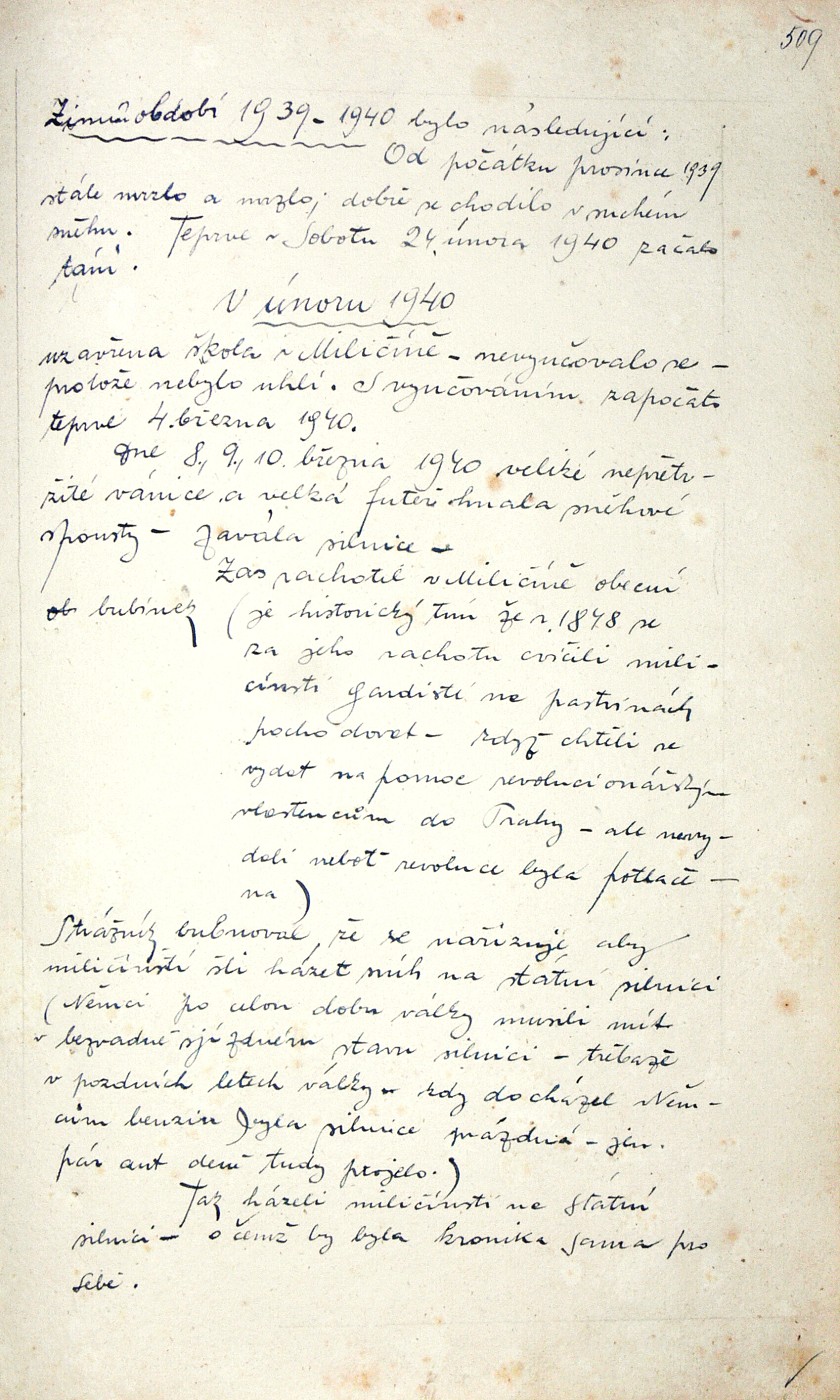 509
Zimní období 1939 - 1940 bylo následující:
Od počátku prosince 1939
stále mrzlo a mrzlo, dobře se chodilo v suchém
sněhu. Teprve v Sobotu 24. února 1940 začalo
tání.
V únoru 1940
uzavřena škola v Miličíně - nevyučovalo se -
protože nebylo uhlí. S vyučováním započato
teprve 4. března 1940.
Dne 8., 9., 10. března 1940 veliké nepřetr-
žité vánice a velká futeř hnala sněhové
spousty - zavála silnice -
Zas rachotil v Miličíně obecní
ob bubínek (je historický tím že r. 1848 se
za jeho rachotu cvičili mili-
čínští gardisté na pastvinách
pochodovat - když chtěli se
vydat na pomoc revolucionářským
vlastencům do Prahy - ale nevy-
dali neboť revoluce byla potlače-
na)
Strážník bubnoval, že se nařizuje aby
miličínští šli házet sníh na státní silnici
(Němci po celou dobu války musili mít
v bezvadně sjízdném stavu silnici - třebaže
v pozdních letech války - kdy docházel Něm-
cům benzin byla silnice prázdná - jen
pár aut denně tudy projelo.)
Tak házeli miličínští na státní
silnici - o čemž by byla kronika sama pro
sebe.